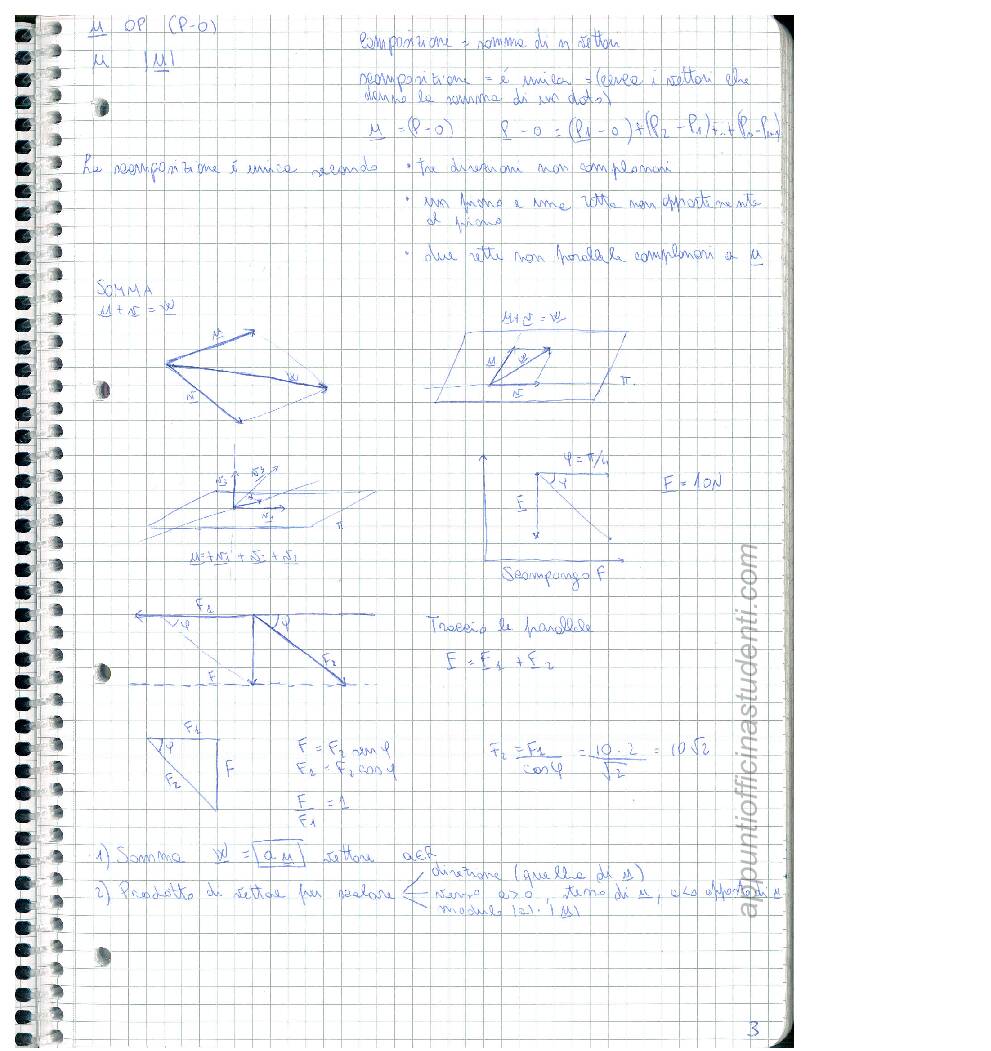 u OP (P-O)
u |u|
Composizione = somma di n vettori
scomposizione = é unica = (cerca i vettori che
danno la somma di un dato)
u = (P-O) P-O = (P1-O)+(P2-P1)+..+(Pn-Pn-1)
La scomposizione é unica secondo
• tre direzioni non complanari
• un piano e una retta non appartenente
al piano
• due rette non parallele complanari a u
SOMMA
u + v = w
u
w
v
u+v = w
u
w
v
π
v3
v2
v1
π
u = v1 + v2 + v3
φ = π/4
φ
F
F = 10N
Scompongo F
F1
φ
φ
F
F2
Traccio le parallele
F = F1 + F2
F1
φ
F2
F
F = F2 sen φ
F1 = F2 cos φ
F/F1 = 1
F2 = F1/cosφ = 10·2/√2 = 10√2
1) Somma w = a u vettore a∈R
2) Prodotto di vettore per scalare
direzione (quella di u)
verso a>0, verso di u, a<0 opposto di u
modulo |a|·|u|
appuntiofficinastudenti.com
3